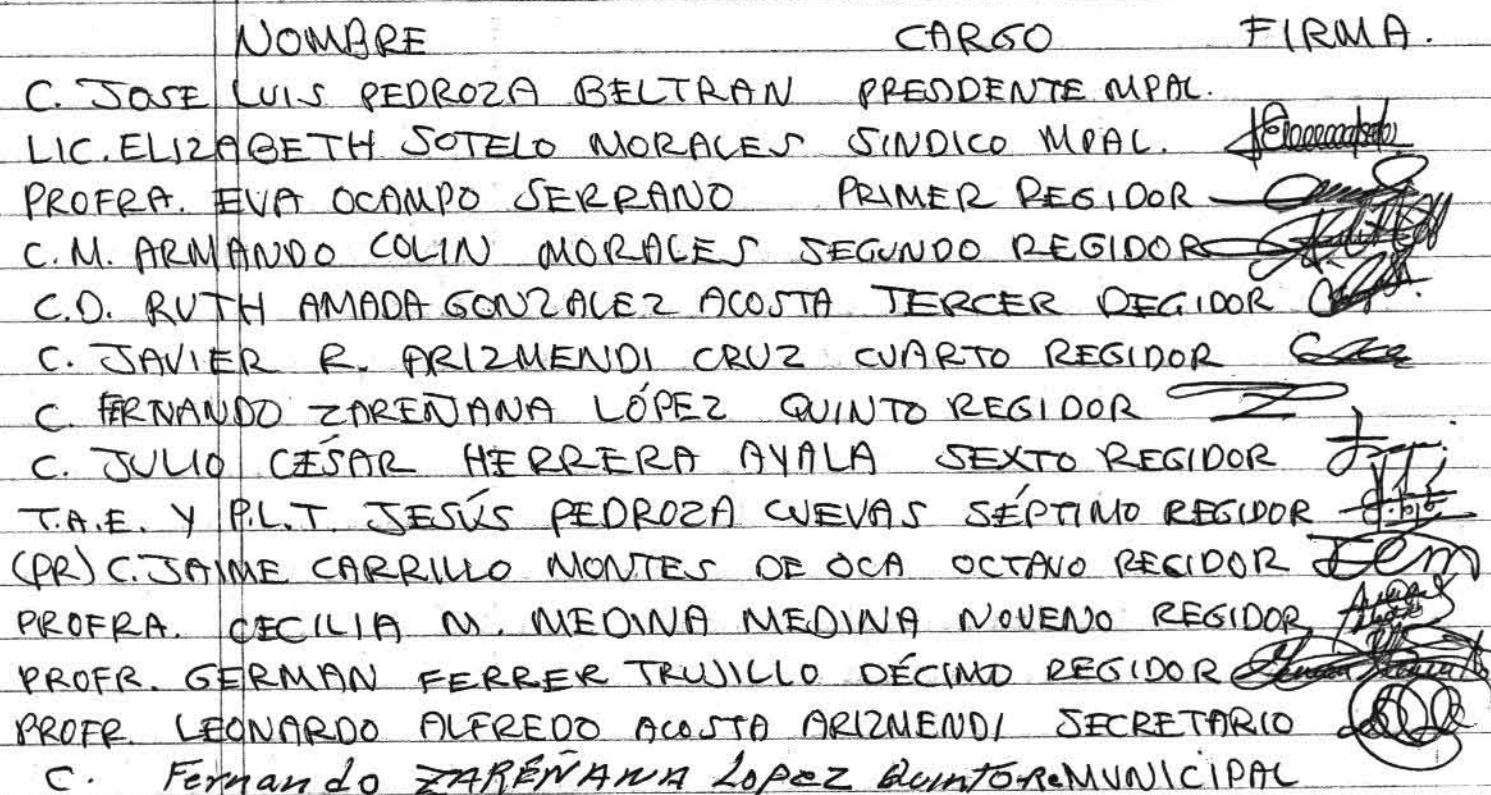 NOMBRE CARGO FIRMA.
C. JOSE LUIS PEDROZA BELTRAN PRESIDENTE MPAL.
LIC. ELIZABETH SOTELO MORALES SINDICO MPAL.
PROFRA. EVA OCAMPO SERRANO PRIMER REGIDOR
C. M. ARMANDO COLIN MORALES SEGUNDO REGIDOR
C.D. RUTH AMADA GONZALEZ ACOSTA TERCER REGIDOR
C. JAVIER R. ARIZMENDI CRUZ CUARTO REGIDOR
C. FERNANDO ZAREÑANA LÓPEZ QUINTO REGIDOR
C. JULIO CÉSAR HERRERA AYALA SEXTO REGIDOR
T.A.E. Y P.L.T. JESÚS PEDROZA CUEVAS SÉPTIMO REGIDOR
(PR) C. JAIME CARRILLO MONTES DE OCA OCTAVO REGIDOR
PROFRA. CECILIA M. MEDINA MEDINA NOVENO REGIDOR
PROFR. GERMAN FERRER TRUJILLO DÉCIMO REGIDOR
PROFR. LEONARDO ALFREDO ACOSTA ARIZMENDI SECRETARIO
C. Fernando ZAREÑANA Lopez QuinTO Re MUNICIPAL